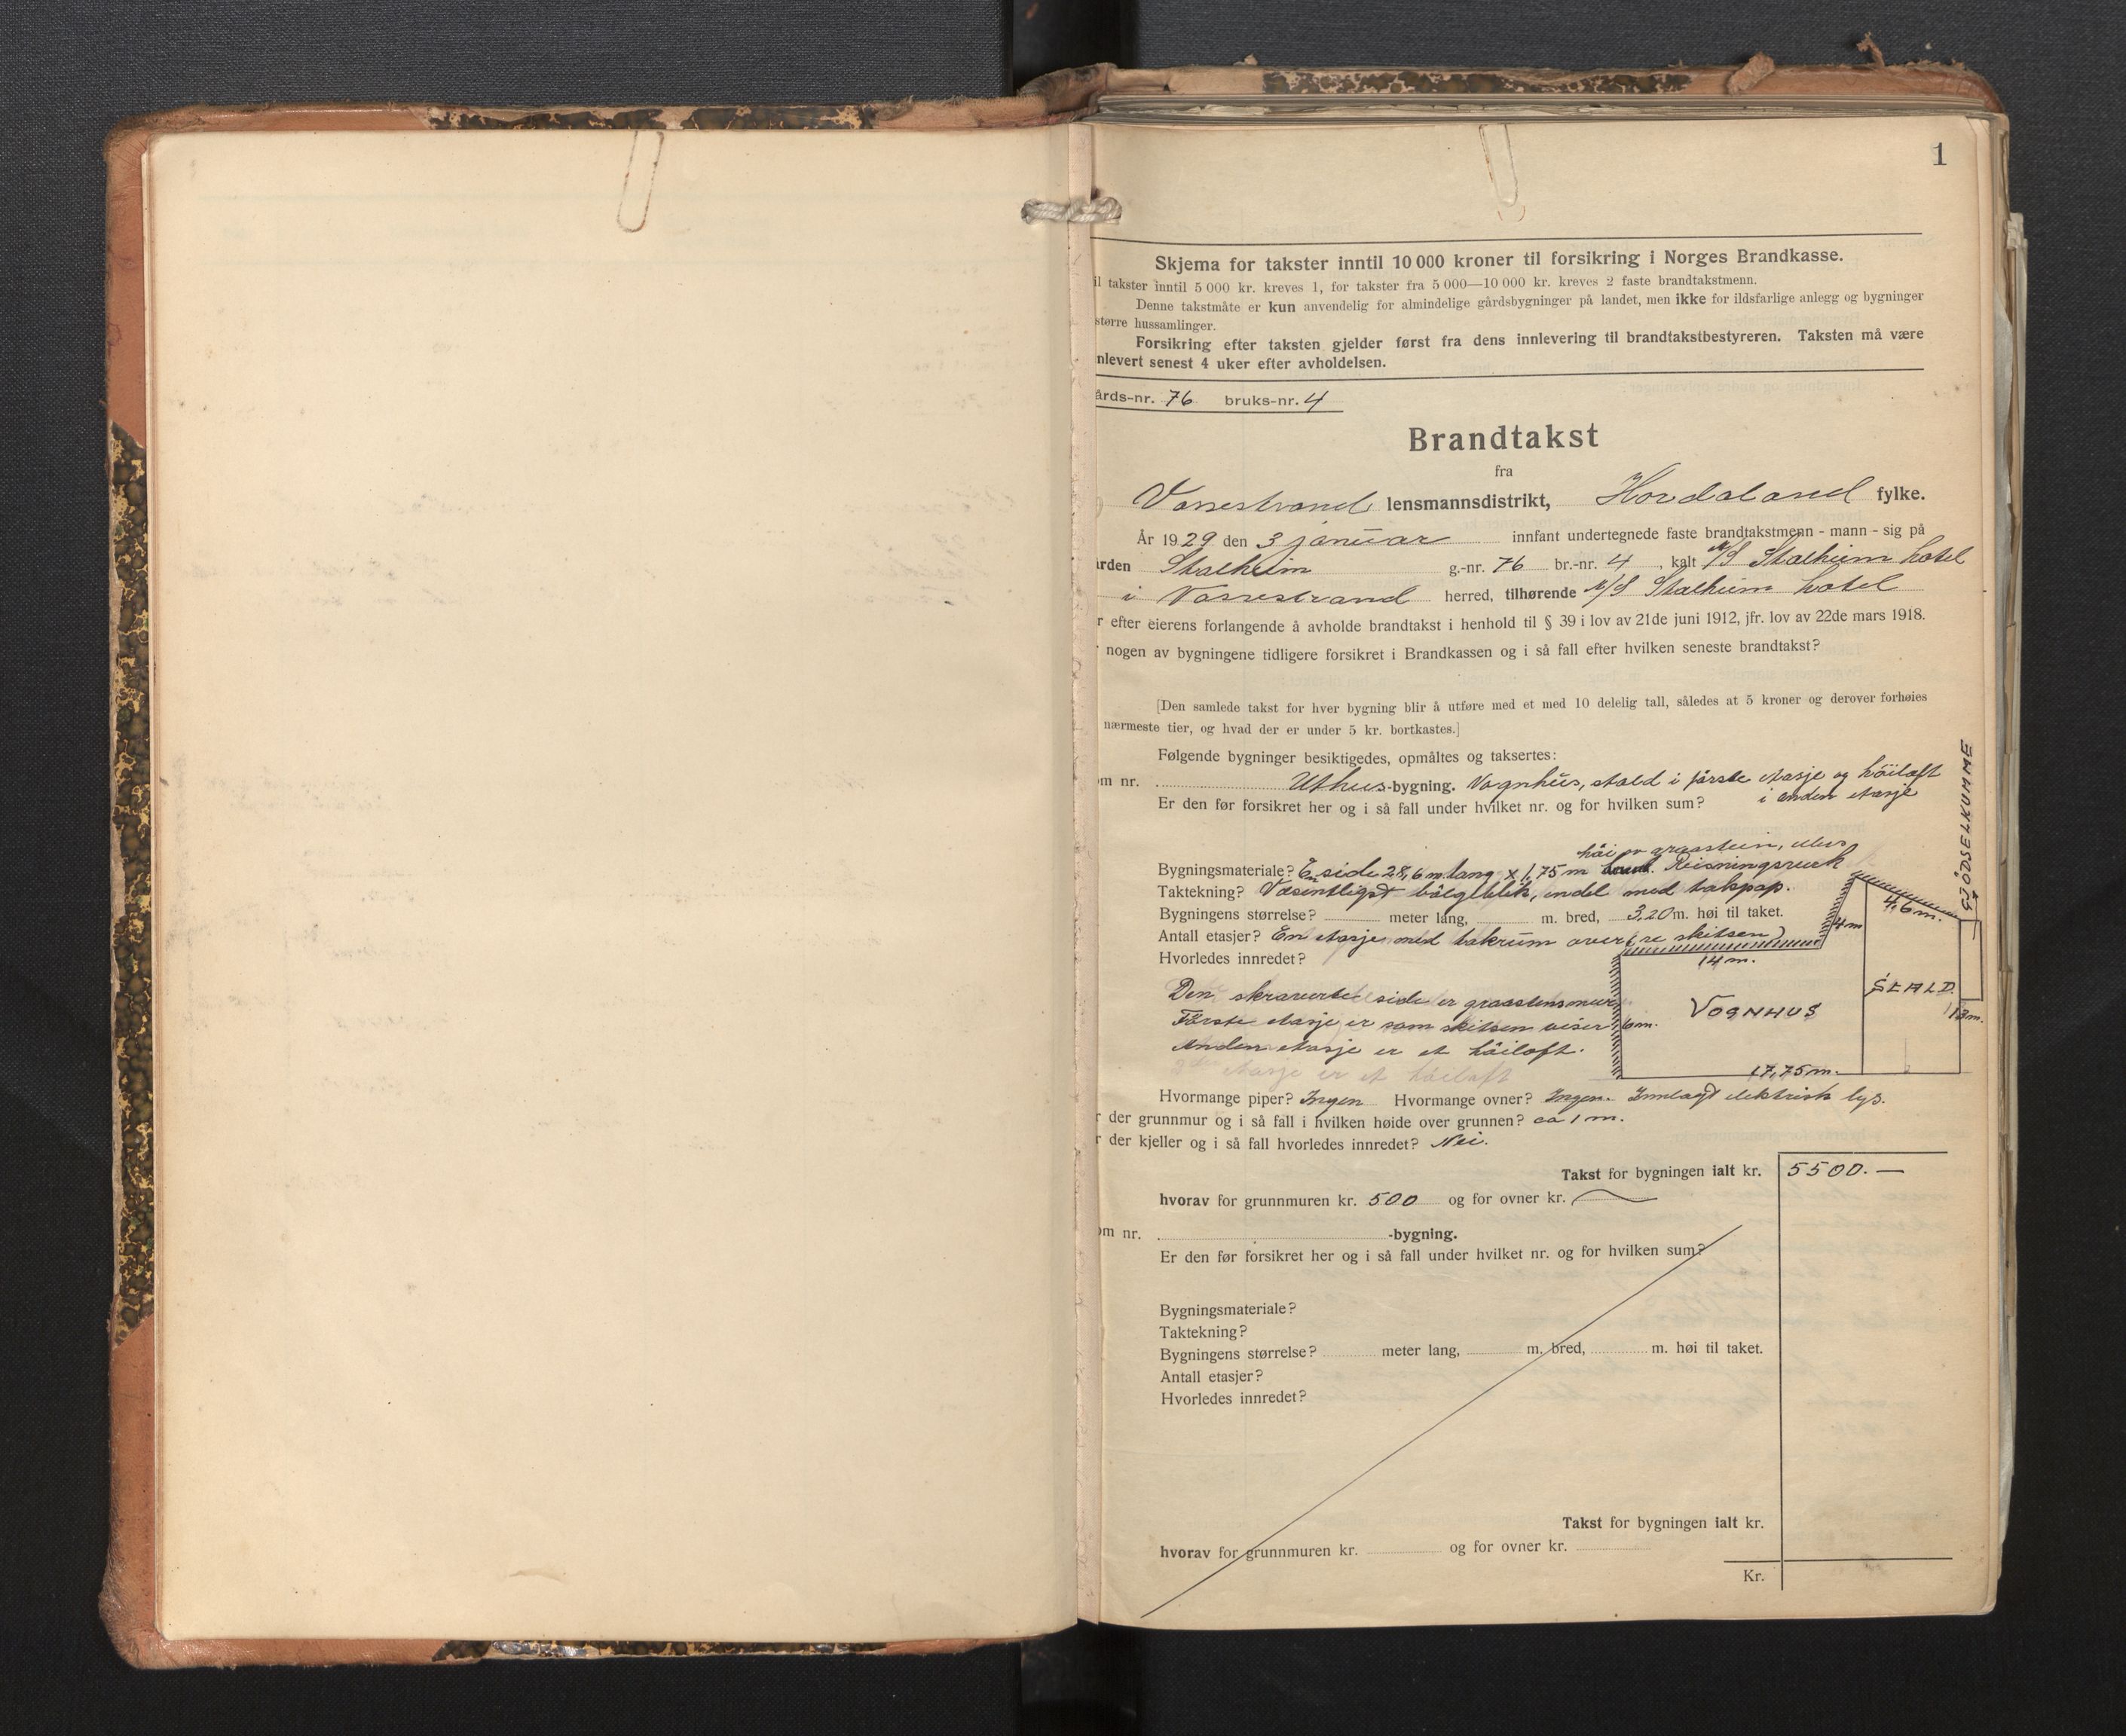 1
Skjema for takster inntil 10 000 kroner til forsikring i Norges Brandkasse.
il takster inntil 5 000 kr. kreves 1, for takster fra 5 000—10 000 kr. kreves 2 faste brandtakstmenn.
Denne takstmåte er kun anvendelig for almindelige gårdsbygninger på landet, men ikke for ildsfarlige anlegg og bygninger
større hussamlinger.
Forsikring efter taksten gjelder først fra dens innlevering til brandtakstbestyreren. Taksten må være
nlevert senest 4 uker efter avholdelsen.
årds-nr. 76 bruks-nr. 4
Brandtakst
fra
Vossestrand lensmannsdistrikt, Hordaland fylke.
År 1929 den 3 januar innfant undertegnede faste brandtakstmenn - mann - sig på
rden Stalheim g.-nr. 76 br.-nr. 4, kalt A/S Stalheim hotel
i Vossestrand herred, tilhørende A/S Stalheim hotel
r efter eierens forlangende å avholde brandtakst i henhold til § 39 i lov av 21de juni 1912, jfr. lov av 22de mars 1918.
nogen av bygningene tidligere forsikret i Brandkassen og i så fall efter hvilken seneste brandtakst?
[Den samlede takst for hver bygning blir å utføre med et med 10 delelig tall, således at 5 kroner og derover forhøies
nærmeste tier, og hvad der er under 5 kr. bortkastes.]
Følgende bygninger besiktigedes, opmåltes og taksertes:
om nr. Uthus-bygning. Vognhus, stald i første etasje og höiloft
i anden etasje
Er den før forsikret her og i så fall under hvilket nr. og for hvilken sum?
høi av graastein, ellers
Bygningsmateriale? En side 28,6 m lang x 1,75 m Reisningsverk
Taktekning? Væsentligst bölgeblik, endel med takpap.
Bygningens størrelse? meter lang, m. bred, 3,20 m. høi til taket.
Antall etasjer? En etasje med takrum over (se skitsen)
Hvorledes innredet?
Den skraverte side er graastensmur
Første etasje er som skitsen viser
Anden etasje er et höiloft.
2den etasje er et höiloft
GJÖDSELKUMME
4,6 m.
4 m
14 m.
STALD.
VOGNHUS
6 m.
13 m.
17,75 m.
Hvormange piper? Ingen Hvormange ovner? Ingen. Innlagt elektrisk lys.
r der grunnmur og i så fall i hvilken høide over grunnen? ca 1 m.
r der kjeller og i så fall hvorledes innredet? Nei.
Takst for bygningen ialt kr. 5500.—
hvorav for grunnmuren kr. 500 og for ovner kr.
om nr. -bygning.
Er den før forsikret her og i så fall under hvilket nr. og for hvilken sum?
Bygningsmateriale?
Taktekning?
Bygningens størrelse? meter lang, m. bred, m. høi til taket.
Antall etasjer?
Hvorledes innredet?
Takst for bygningen ialt kr.
hvorav for grunnmuren kr. og for ovner kr.
Kr.